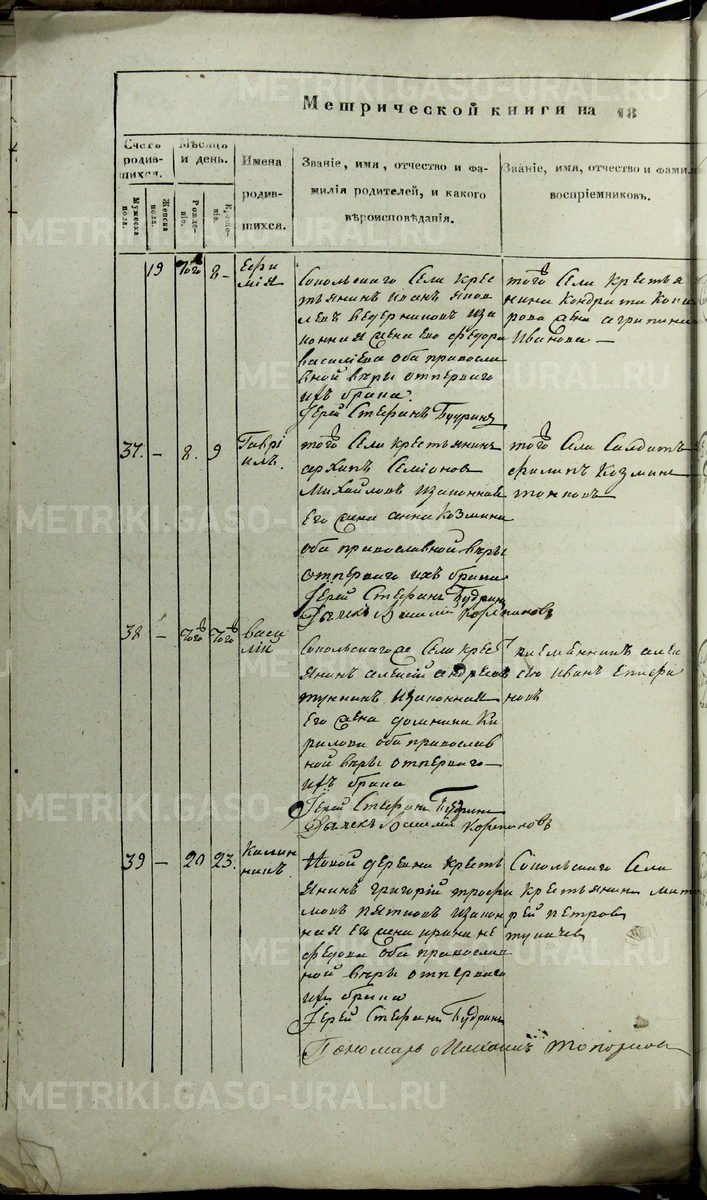 Метрической книги на 18
Счетъ родившихся.
Мужеска пола.
Женска пола.
Мѣсяцъ и день.
Рожденіе.
Крещеніе.
Имена
родив-
шихся.
Званіе, имя, отчество и фа-
милія родителей, и какого
вѣроисповѣданія.
Званіе, имя, отчество и фамил
воспріемниковъ.
19 того 8
Ефи
мія
Сопольскаго Села Крес
тьянинъ Иванъ Яков
левъ Ведерниковъ Иза
конная жена его Федора
василіева оба православ
ной вѣры отперваго
ихъ брака.
Іерей Стефанъ Будринъ
того Села Крестья
нина Кондрата
жена агрипина
Иванова
37. - 8. 9
Гаврі
илъ.
того Села крестьянинъ
архипъ Семіоновъ
Михайловъ Изаконная
Его жена анна Козмина
оба православной вѣры
отперваго ихъ брака
Іерей Стефанъ Будринъ
Дьячекъ Василій
того Села Салдатъ
филипъ Козминъ
38 - того того
васи
лій
Сопольскаго Села крест
янинъ алексій андреевъ
Изаконная
Его жена домника Ки
рилова оба православ
ной вѣры отперваго
ихъ брака
Іерей Стефанъ Будринъ
Дьячекъ Василій
племянникъ алек
сѣю Иванъ
39 - 20 23.
Калин
никъ.
Новой деревни кресть
янинъ григорій трофи
мовъ Изакон
ная Его жена ирина не
федова оба православ
ной вѣры отперваго
ихъ брака
Іерей Стефанъ Будринъ
Пономарь Михаилъ Топорковъ
Сопольскаго Села
Крестьянинъ
Петровъ
METRIKI.GASO-URAL.RU